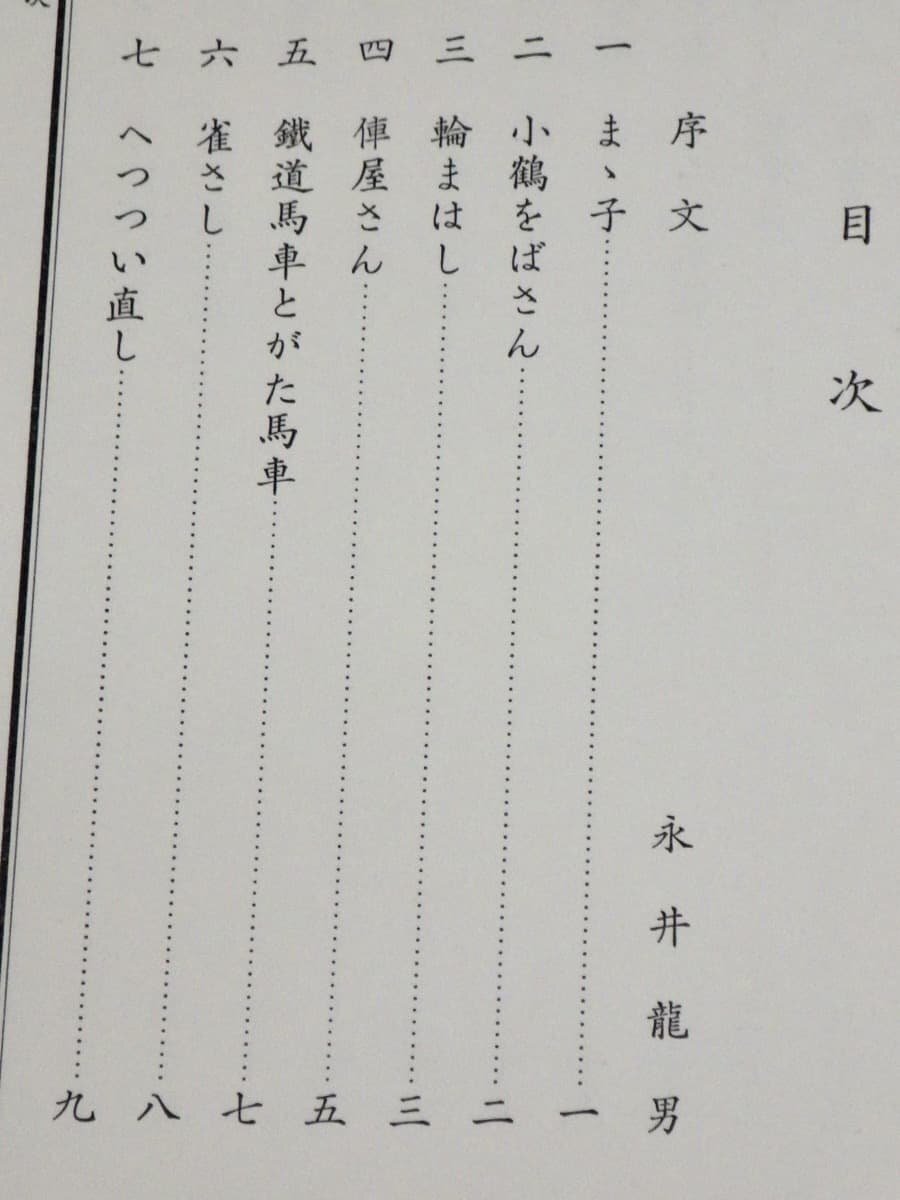 目次
序文 永井龍男
一 まゝ子……一
二 小鶴をばさん……二
三 輪まはし……三
四 俥屋さん……五
五 鐵道馬車とがた馬車……七
六 雀さし……八
七 へつつい直し……九
次